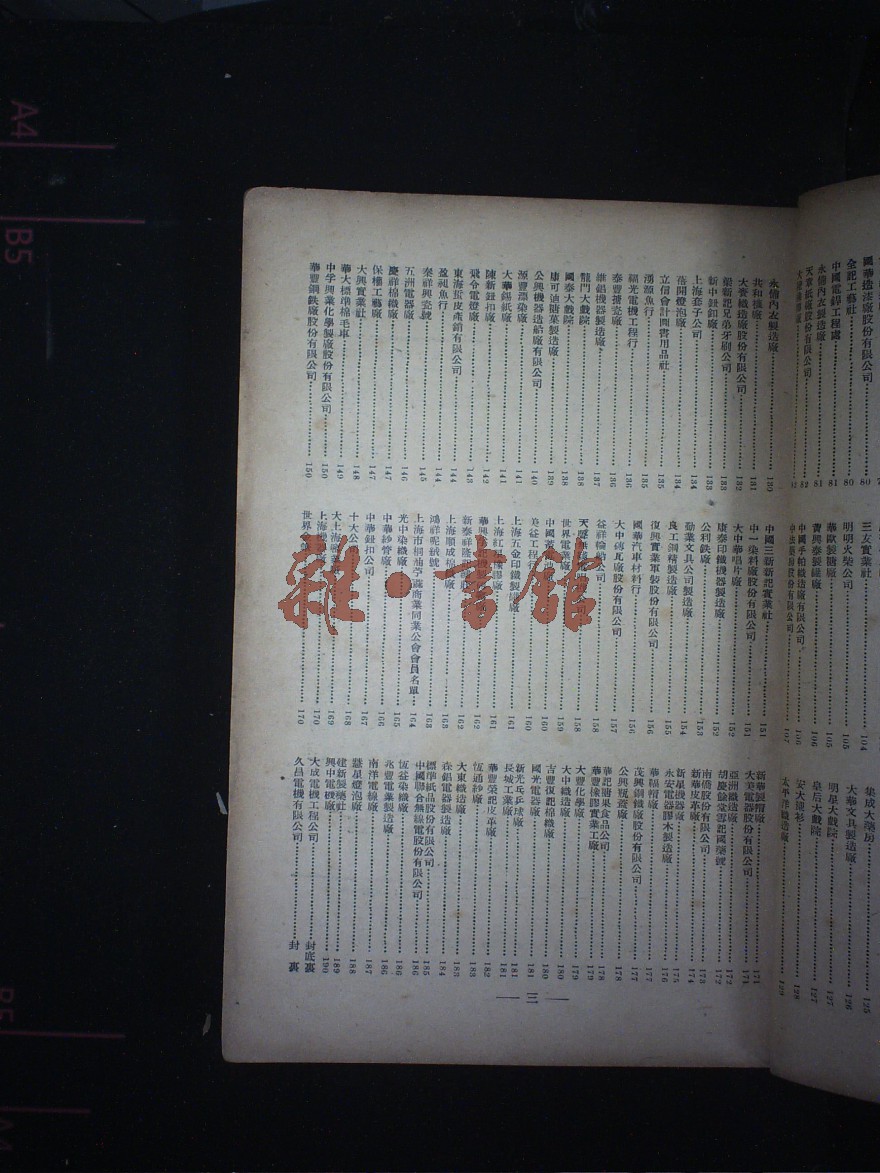 永備內衣製造廠 130
共和機廠 131
大業機造廠股份有限公司 131
梁新記兄弟牙刷公司 132
新中鈕釦廠 133
上海套子公司 133
蓓開燈泡廠 134
立信會計圖書用品社 135
湧源魚行 135
福光電機工程行 136
泰豐搪瓷廠 136
維錩機器製造廠 137
龍門大戲院 138
國泰大戲院 138
康可油糖菓製造廠 139
公興機器造船廠有限公司 140
源豐潭染廠 141
大華錫紙廠 141
陳新鈕扣廠 142
飛令電燈廠 143
東海蛋皮產銷有限公司 144
盈視魚行 144
秦祥興瓷號 145
五洲電器廠 146
慶祥棉織廠 147
保權工藝廠 147
大興實業社 148
華大標準棉毛車 149
中孚興業化學製廠股份有限公司 150
華豐鋼鉄廠股份有限公司 150
中國三新新記實業社 151
中一染料廠股份有限公司 151
大中華唱片廠 152
康泰印鐵機器製造廠 152
公利鉄廠 153
勤業文具公司製造廠 154
良工鋼精製造廠 155
復興實業軍裝股份有限公司 156
國華汽車材料行 156
大中磚瓦廠股份有限公司 157
益祥輪船公司 158
世界電業廠 159
美益工程行 160
上海五金印鐵製罐廠 161
上海順成棉織廠 162
鴻祥呢絨號 163
上海市桐油苧蔴商業同業公會會員名單 164
光中染織廠 165
中華紗管廠 166
中華鈕扣公司 167
十大公司 168
169
170
170
新華製帽廠 171
大美電器股份有限公司 171
亞洲織造廠 172
胡慶餘堂雪記國藥號 172
南僑股份有限公司 173
新華皮革廠 174
新星機器廠 175
永安電器膠木製造廠 176
華福帽廠 177
茂興鋼鐵廠股份有限公司 177
公興瓶蓋廠 178
華記糖果食品公司 178
華豐橡膠實業工廠 179
大豐化學廠 179
大中織造廠 180
吉豐復記棉織廠 180
國光電器廠 181
新光乒乓球廠 181
長城工業廠 181
華豐榮記皮革廠 182
恆通紗廠 183
大東織造廠 183
森錩電器製造廠 184
標準紙品股份有限公司 185
中國聯合無線電股份有限公司 186
恆益染織廠 186
兆豐電業製造廠 186
南洋電線廠 187
慧星燈泡廠 188
建新製藥社 189
興中電機廠 190
大成電機工程公司 封底裏
久昌電機有限公司 封裏
三
國華造漆廠股份有限公司 80
全記工藝社 80
中國電銲工程處 81
永備內衣製造廠 81
天章紙廠股份有限公司 82
三友實業社 104
明明火柴公司 105
華歐製糖廠 105
寶興泰製鏈廠 106
中國手帕織造廠有限公司 106
107
集成大藥房 125
大華文具製造廠 126
明星大戲院 127
皇后大戲院 127
安大襯衫 128
太平洋織造廠 129
雜·書館
A4
B5